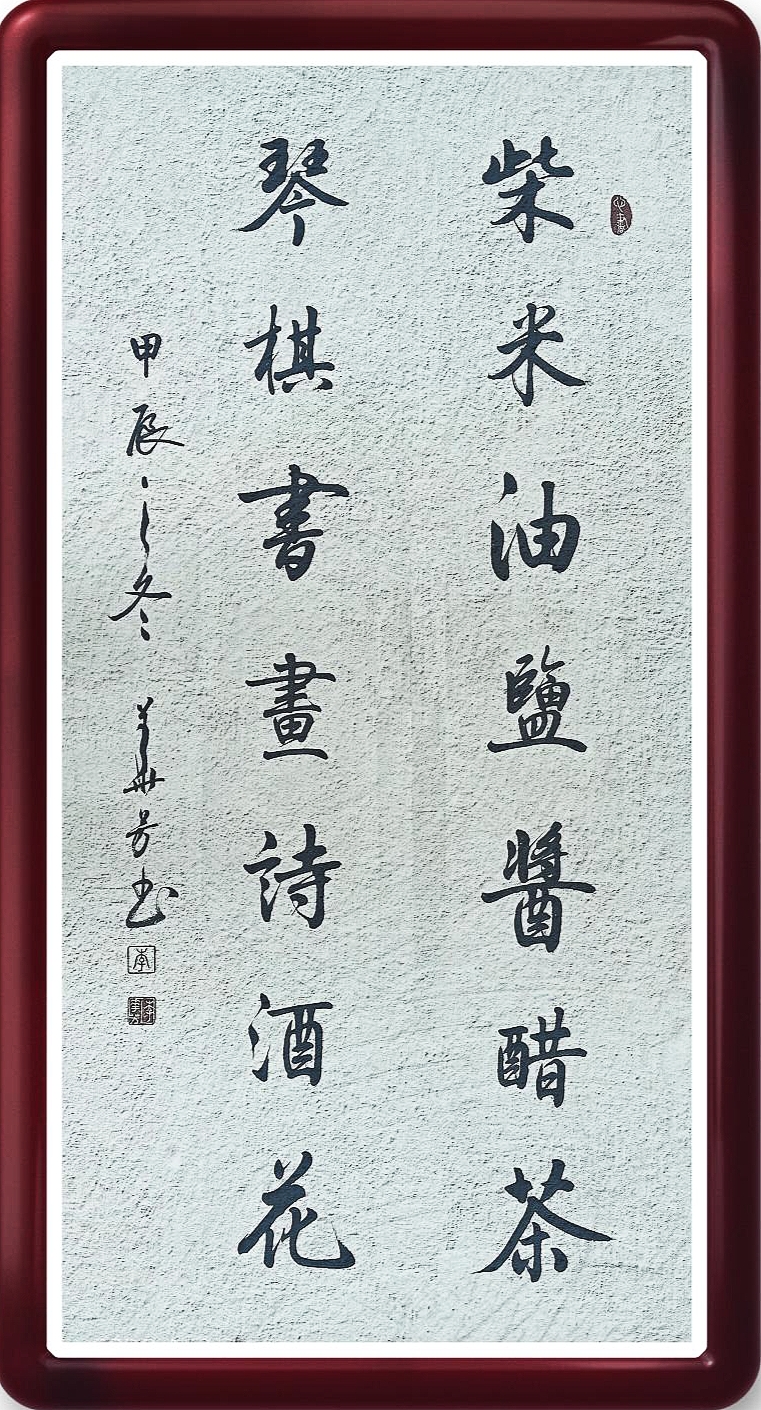 柴米油鹽醬醋茶
琴棋書畫詩酒花
甲辰之冬 華芳书
李